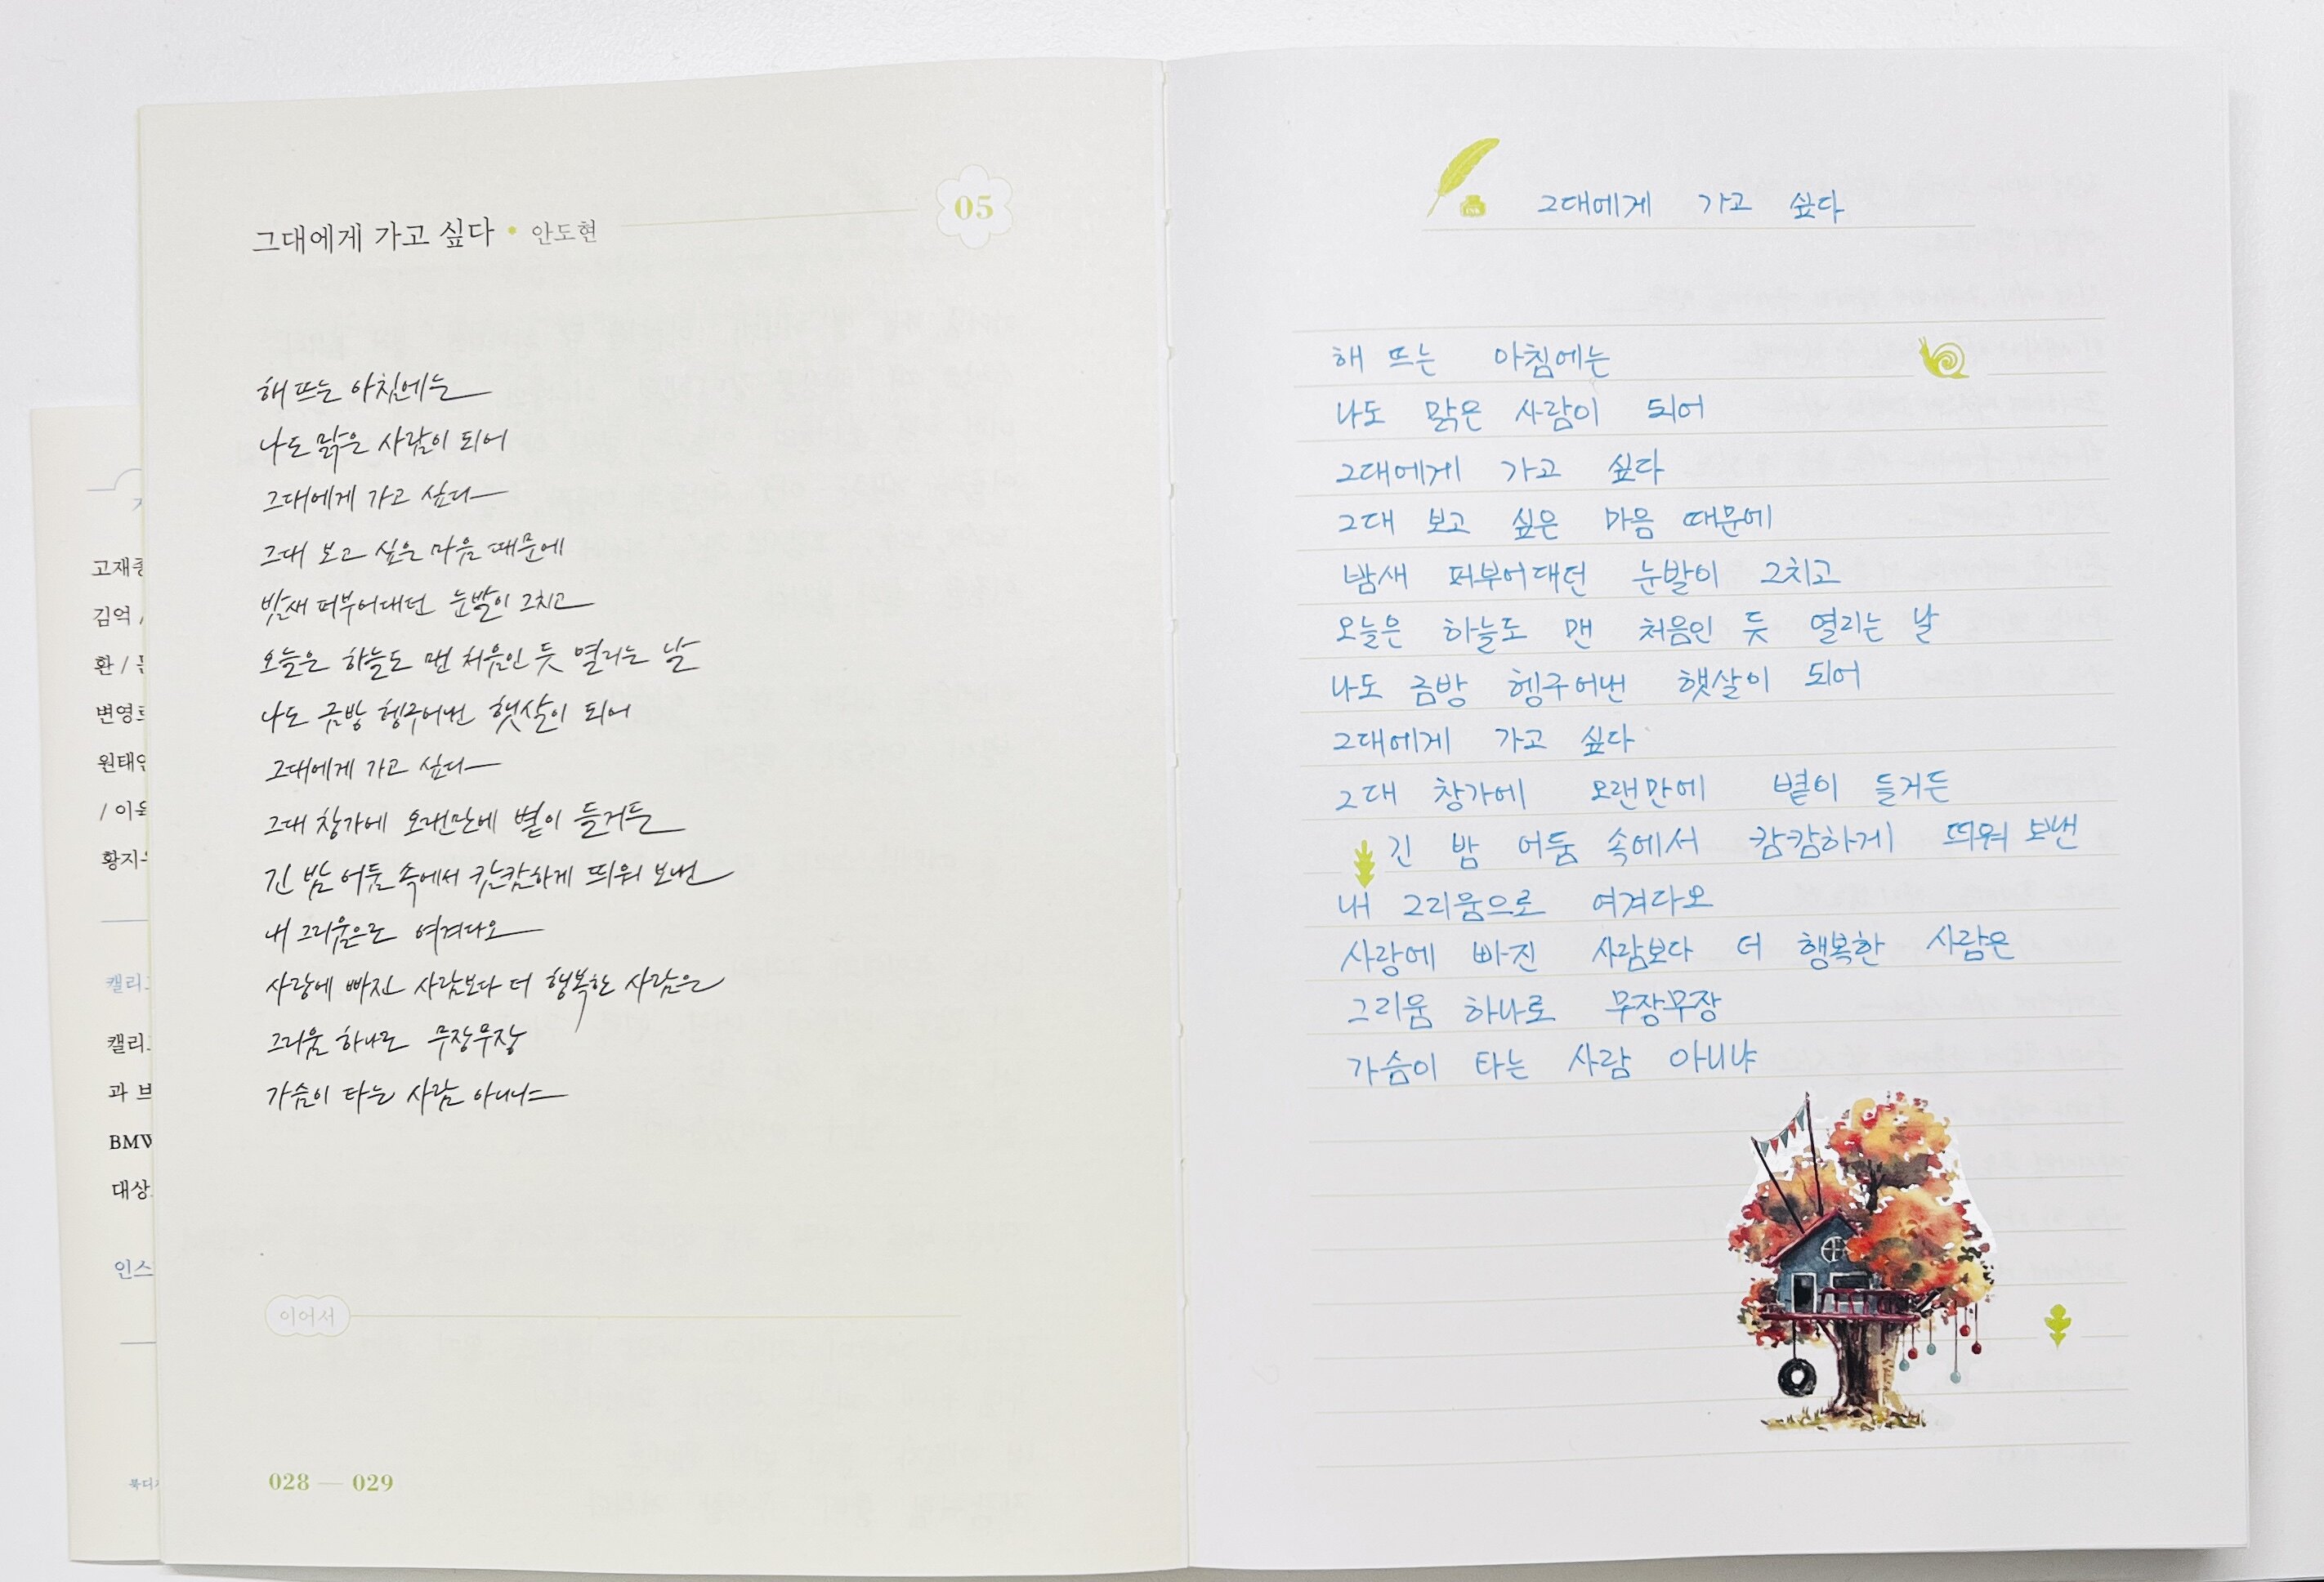 그대에게 가고 싶다 • 안도현
05
해 뜨는 아침에는
나도 맑은 사람이 되어
그대에게 가고 싶다
그대 보고 싶은 마음 때문에
밤새 퍼부어대던 눈발이 그치고
오늘은 하늘도 맨 처음인 듯 열리는 날
나도 금방 헹구어낸 햇살이 되어
그대에게 가고 싶다
그대 창가에 오랜만에 볕이 들거든
긴 밤 어둠 속에서 캄캄하게 띄워 보낸
내 그리움으로 여겨다오
사랑에 빠진 사람보다 더 행복한 사람은
그리움 하나로 무장무장
가슴이 타는 사람 아니냐
이어서
028 — 029
고재종
김억 /
환 /
변영로
원태연
/ 이육
황지우
캘리그
캘리그
과 브
BMW
대상
인스
북디자
INK
그대에게 가고 싶다
해 뜨는 아침에는
나도 맑은 사람이 되어
그대에게 가고 싶다
그대 보고 싶은 마음 때문에
밤새 퍼부어대던 눈발이 그치고
오늘은 하늘도 맨 처음인 듯 열리는 날
나도 금방 헹구어낸 햇살이 되어
그대에게 가고 싶다
그대 창가에 오랜만에 볕이 들거든
긴 밤 어둠 속에서 캄캄하게 띄워 보낸
내 그리움으로 여겨다오
사랑에 빠진 사람보다 더 행복한 사람은
그리움 하나로 무장무장
가슴이 타는 사람 아니냐